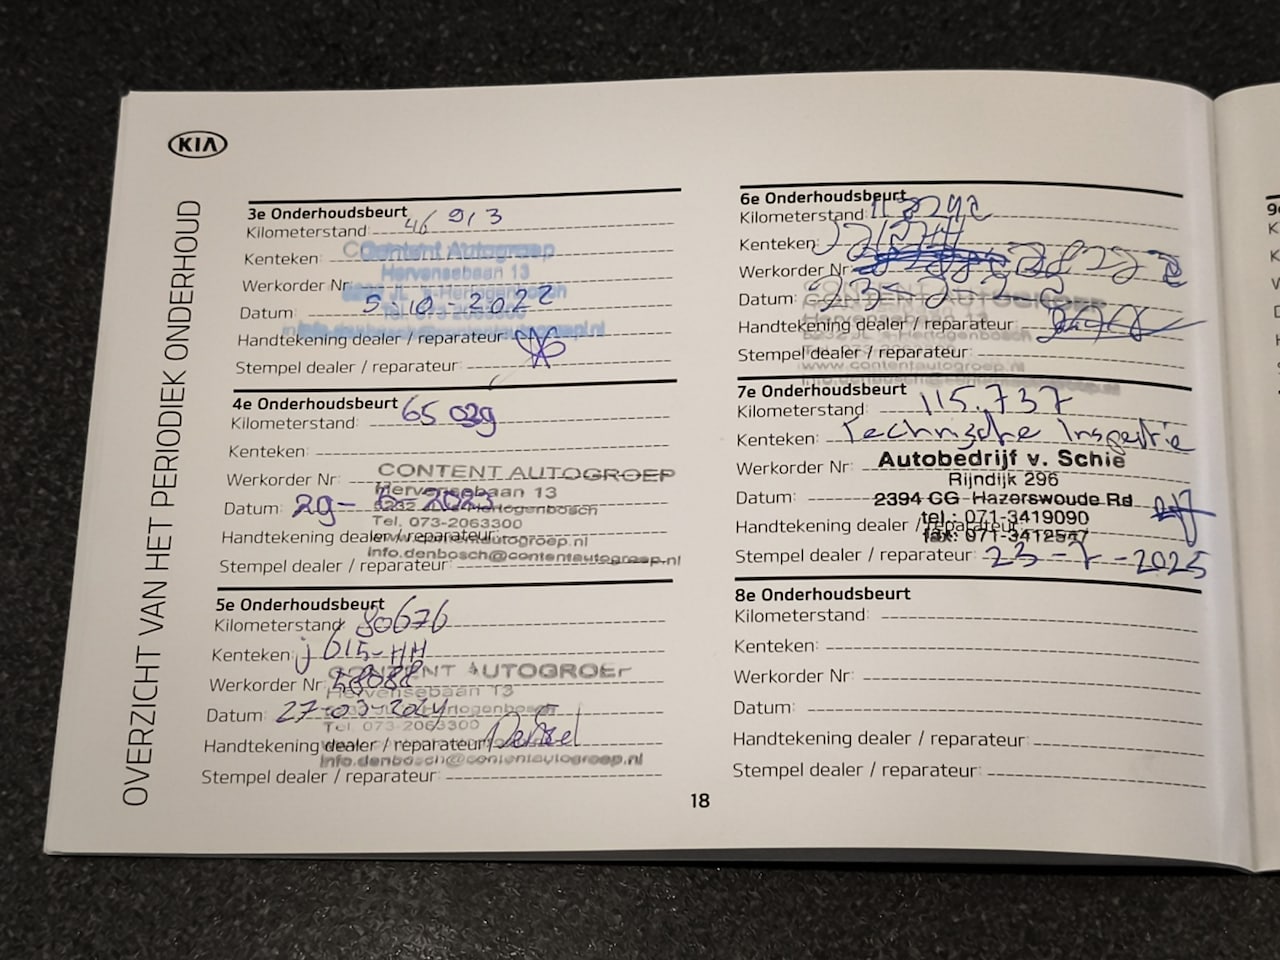 KIA
OVERZICHT VAN HET PERIODIEK ONDERHOUD
3e Onderhoudsbeurt
Kilometerstand: 46 913
Kenteken:
Content Autogroep
Hervensebaan 13
Werkorder Nr:
5232 JL 's-Hertogenbosch
Datum: 5-10-2022
Tel. 073-2063300
info.denbosch@contentautogroep.nl
Handtekening dealer / reparateur:
Stempel dealer / reparateur:
4e Onderhoudsbeurt
Kilometerstand: 65 029
Kenteken:
Werkorder Nr:
CONTENT AUTOGROEP
Hervensebaan 13
Datum: 29-6-2023
5232 JL 's-Hertogenbosch
Tel. 073-2063300
Handtekening dealer / reparateur:
www.contentautogroep.nl
info.denbosch@contentautogroep.nl
Stempel dealer / reparateur:
5e Onderhoudsbeurt
Kilometerstand: 80676
Kenteken: j 615-HH
CONTENT AUTOGROEP
Werkorder Nr:
Hervensebaan 13
Datum: 27-03-2024
's-Hertogenbosch
Tel. 073-2063300
Handtekening dealer / reparateur:
info.denbosch@contentautogroep.nl
Stempel dealer / reparateur:
18
6e Onderhoudsbeurt
Kilometerstand:
Kenteken:
Werkorder Nr:
Datum:
CONTENT AUTOGROEP
Hervensebaan 13
Handtekening dealer / reparateur:
5232 JL 's-Hertogenbosch
Tel. 073-2063300
Stempel dealer / reparateur:
www.contentautogroep.nl
info.denbosch@contentautogroep.nl
7e Onderhoudsbeurt
Kilometerstand: 115.737
Kenteken: Technische Inspectie
Werkorder Nr:
Autobedrijf v. Schie
Rijndijk 296
Datum:
2394 CG Hazerswoude Rd
tel.: 071-3419090
Handtekening dealer / reparateur:
fax: 071-3412547
Stempel dealer / reparateur: 23-7-2025
8e Onderhoudsbeurt
Kilometerstand:
Kenteken:
Werkorder Nr:
Datum:
Handtekening dealer / reparateur:
Stempel dealer / reparateur: